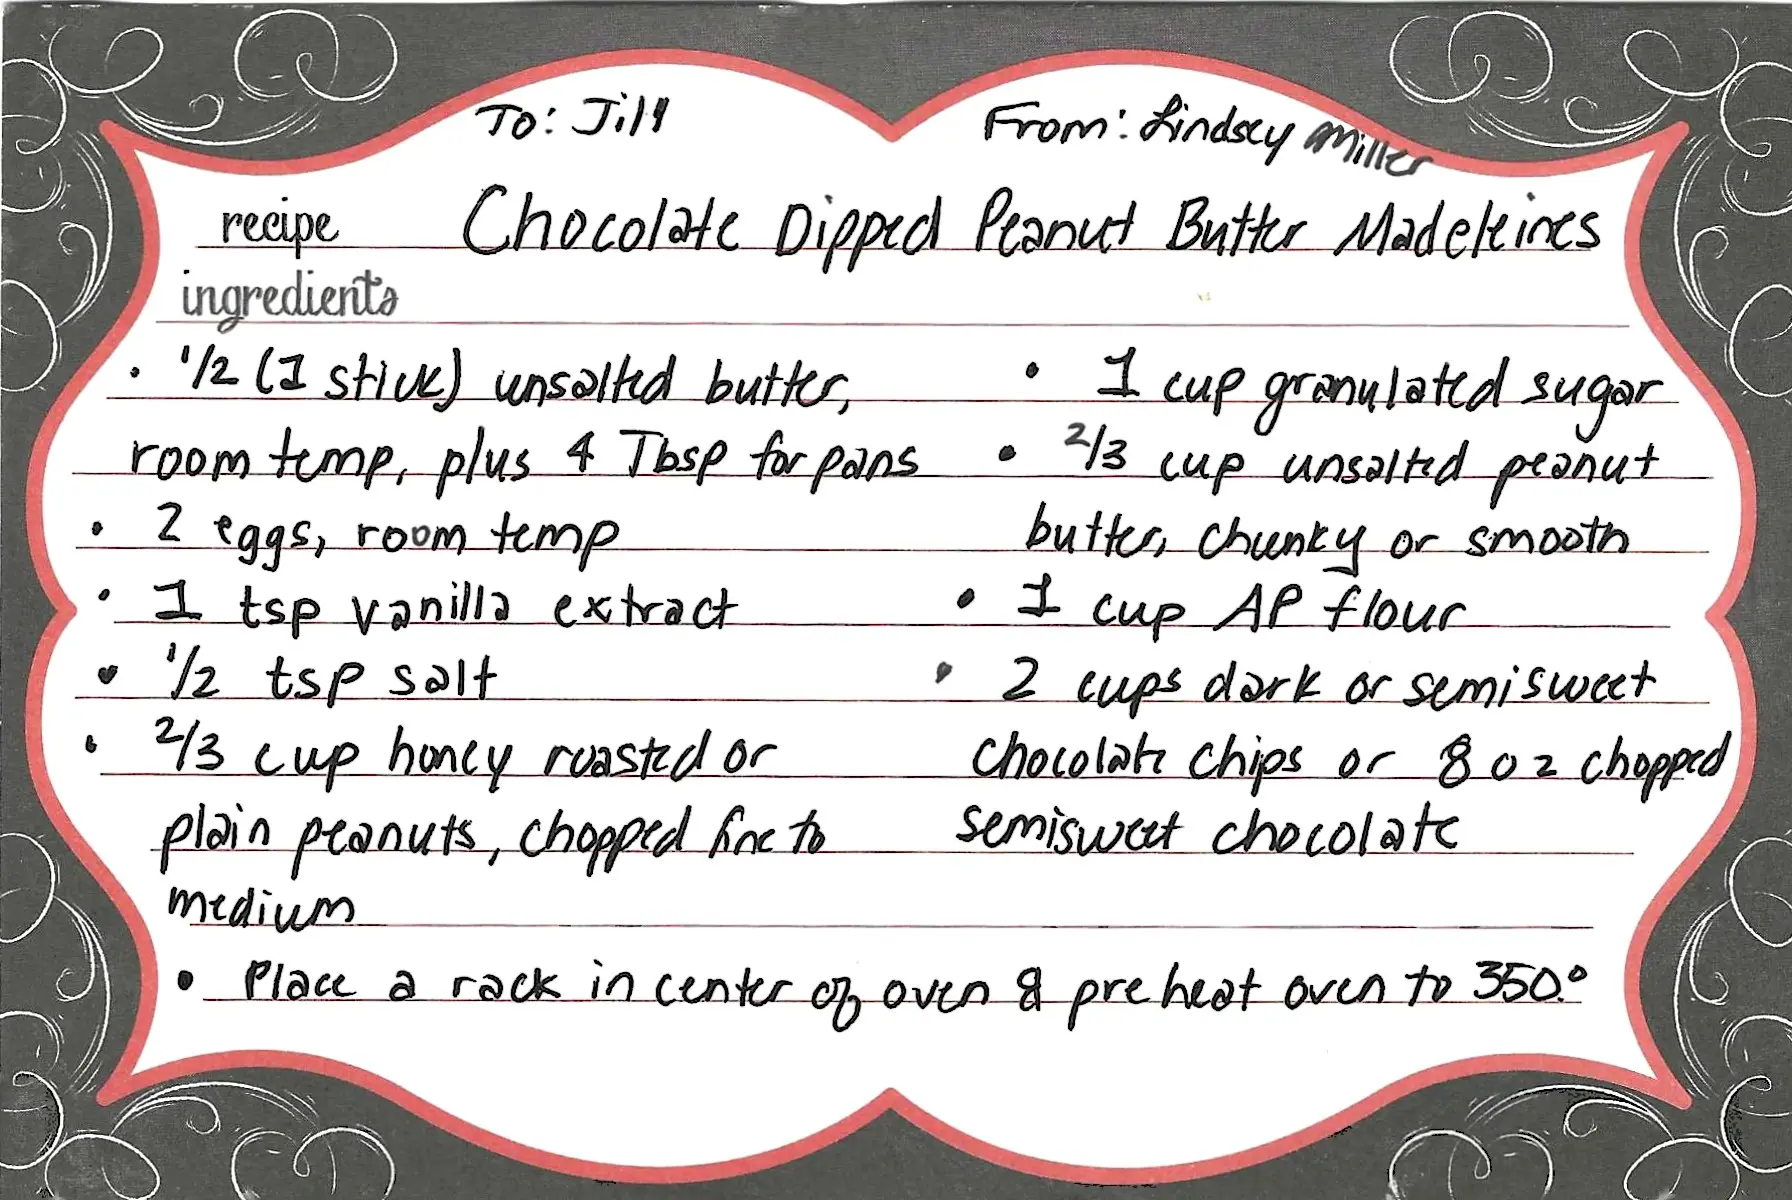 To: Jill
From: Lindsey Miller
recipe
Chocolate Dipped Peanut Butter Madeleines
ingredients
• 1/2 (1 stick) unsalted butter,
room temp, plus 4 Tbsp for pans
• 2 eggs, room temp
• 1 tsp vanilla extract
• 1/2 tsp salt
• 2/3 cup honey roasted or
plain peanuts, chopped fine to
medium
• 1 cup granulated sugar
• 2/3 cup unsalted peanut
butter, chunky or smooth
• 1 cup AP flour
• 2 cups dark or semisweet
chocolate chips or 8 oz chopped
semisweet chocolate
• Place a rack in center of oven & preheat oven to 350.°